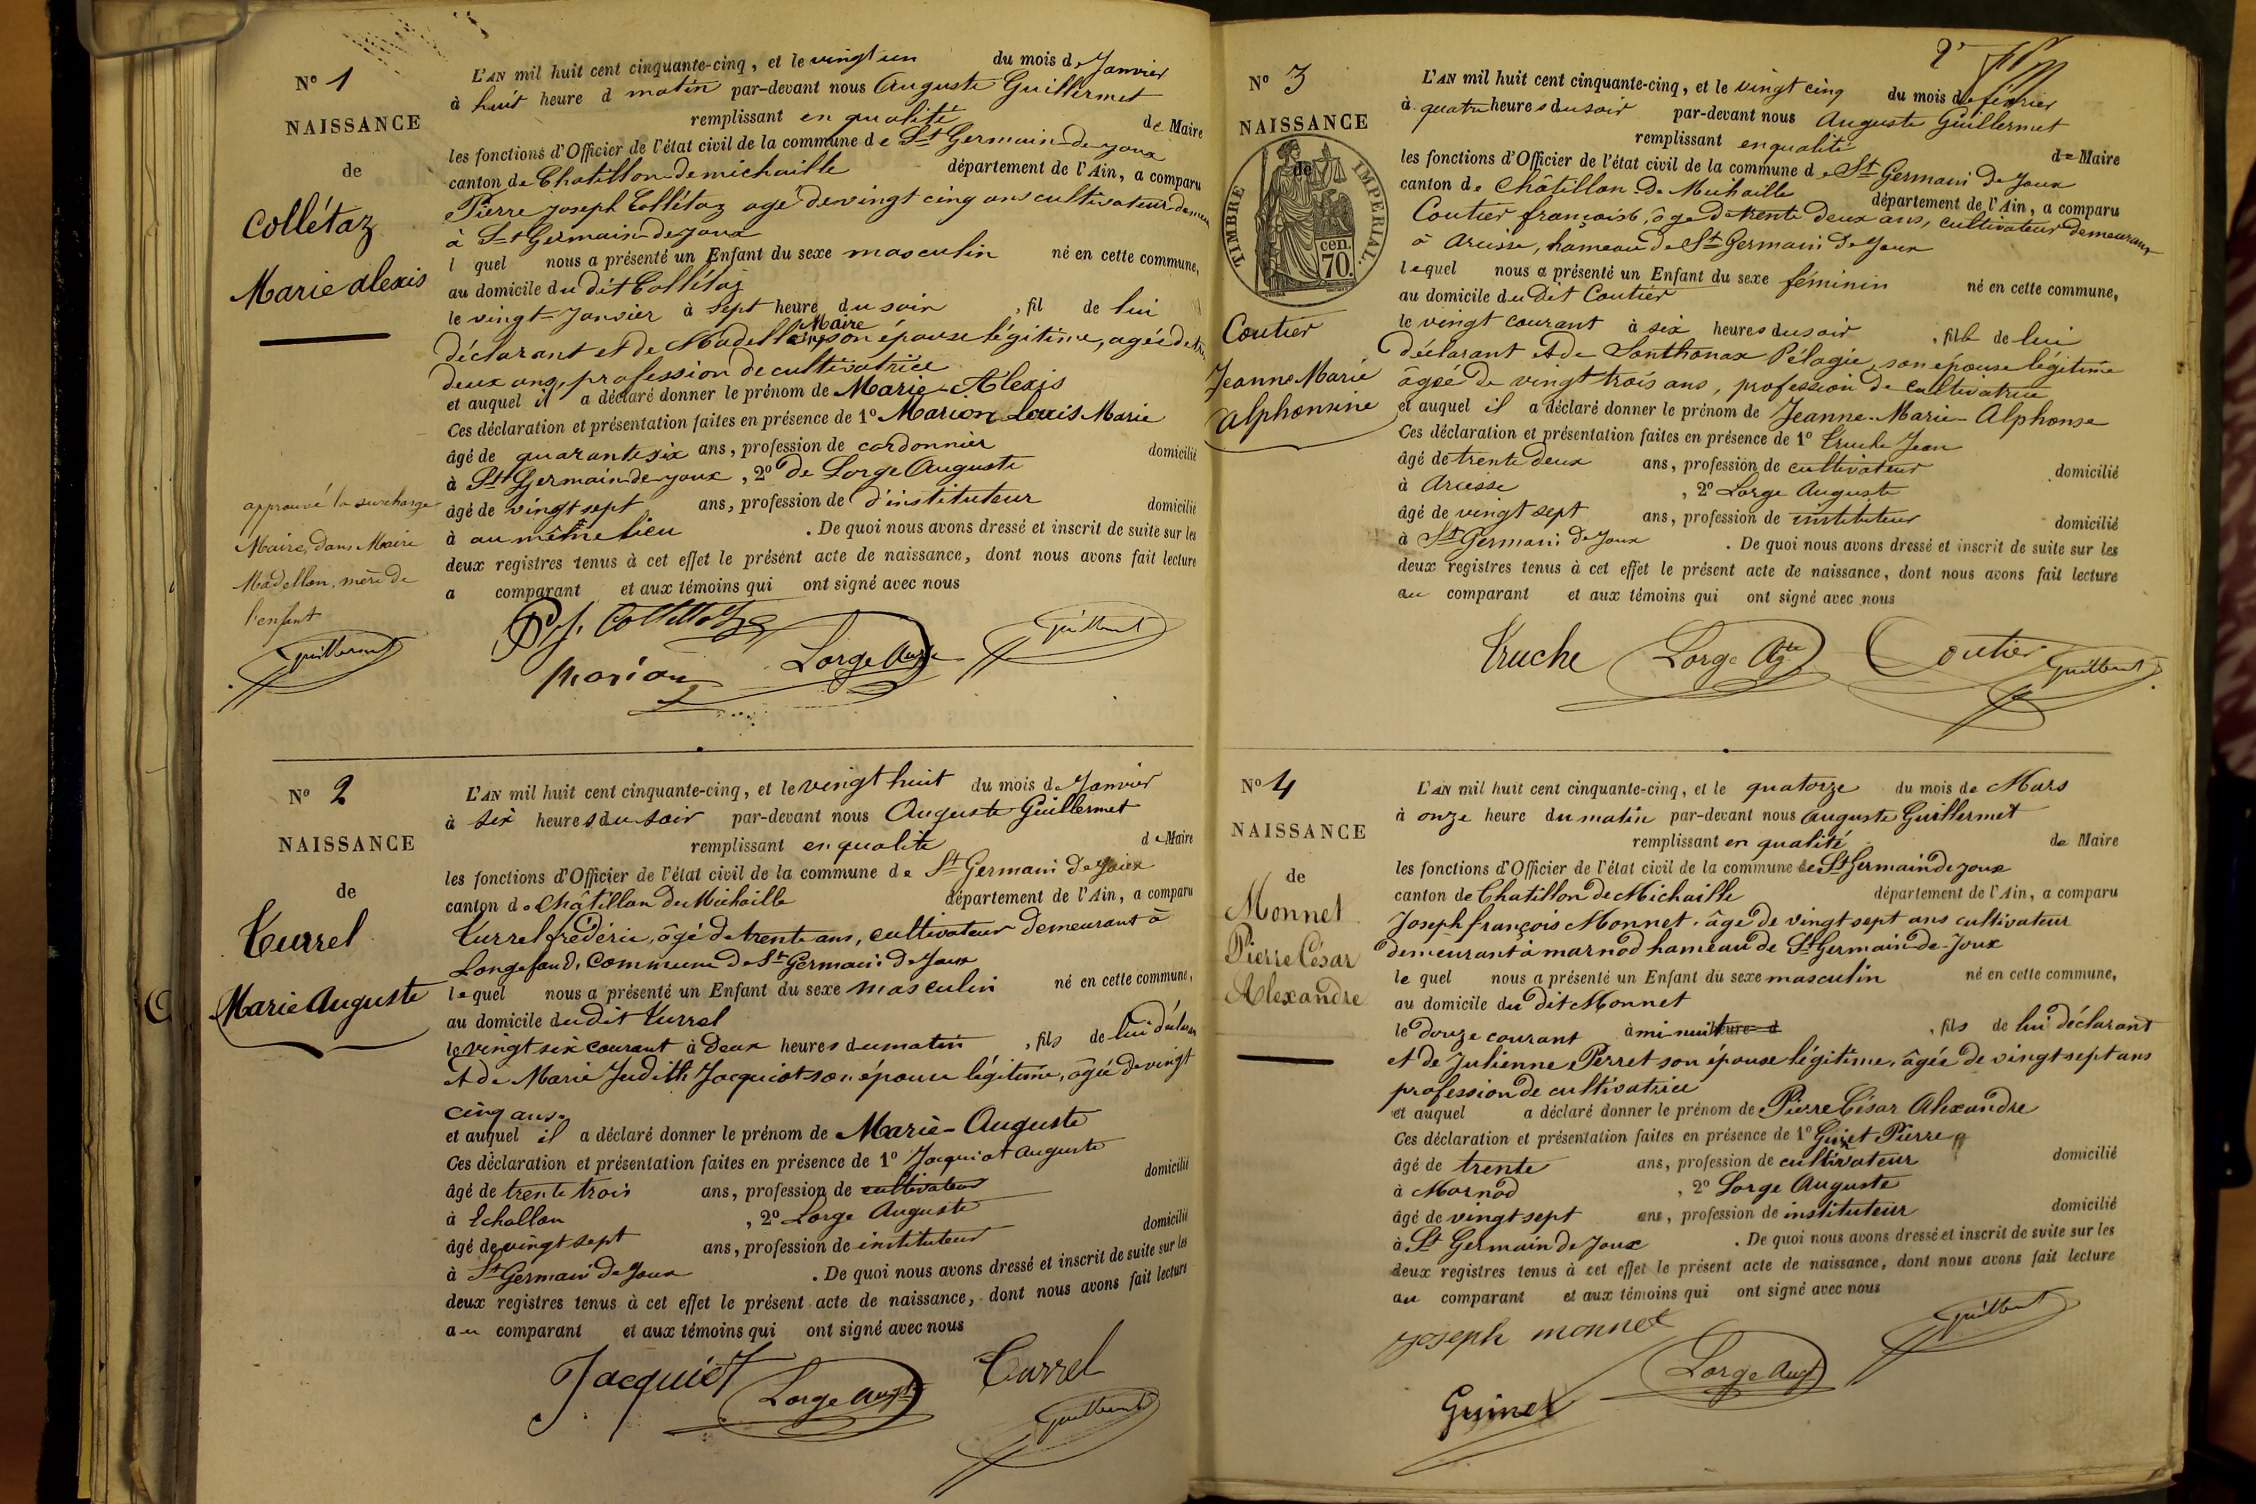 N° 1
NAISSANCE
de
Collétaz
Marie Alexis
L'AN mil huit cent cinquante-cinq, et le vingt un du mois de Janvier
à huit heure d matin par-devant nous Auguste Guillermet
remplissant en qualité de Maire
les fonctions d'Officier de l'état civil de la commune de St Germain-de-joux
canton de Chatillon-de michaille département de l'Ain, a comparu
Pierre Joseph Collétaz agé de vingt cinq ans cultivateur demeu
à St Germain-de-joux
l quel nous a présenté un Enfant du sexe masculin né en cette commune,
au domicile du dit Collétaz
le vingt Janvier à sept heure du soir, fil de lui
Maire
déclarant et de Madellon son épouse légitime, agée de
deux ans, profession de cultivatrice
et auquel il a déclaré donner le prénom de Marie-Alexis
Ces déclaration et présentation faites en présence de 1° Marion Louis Marie
âgé de quarante six ans, profession de cordonnier domicilié
à St Germain-de-joux, 2° de Lorge Auguste
âgé de vingt sept ans, profession de d'instituteur domicilié
à au même lieu. De quoi nous avons dressé et inscrit de suite sur les
deux registres tenus à cet effet le présent acte de naissance, dont nous avons fait lecture
a comparant et aux témoins qui ont signé avec nous
approuvé la surcharge
Maire, dans Maire
Madellon, mère de
l'enfant
Guillermet
P. J. Collétaz
Marion Lorge Aug.te Guillermet
N° 2
NAISSANCE
de
Turrel
Marie Auguste
L'AN mil huit cent cinquante-cinq, et le vingt huit du mois de Janvier
à six heures du soir par-devant nous Auguste Guillermet
remplissant en qualité de Maire
les fonctions d'Officier de l'état civil de la commune de St Germain de Joux
canton de Châtillon de Michaille département de l'Ain, a comparu
Turrel frédéric, âgé de trente ans, cultivateur demeurant à
Longefand, commune de St Germain de Joux
lequel nous a présenté un Enfant du sexe masculin né en cette commune,
au domicile du dit Turrel
le vingt six courant à deux heures du matin, fils de lui déclarant
et de Marie Judith Jacquiot son épouse légitime, âgée de vingt
cinq ans.
et auquel il a déclaré donner le prénom de Marie-Auguste
Ces déclaration et présentation faites en présence de 1° Jacquiot Auguste
âgé de trente trois ans, profession de cultivateur domicilié
à Echallon, 2° Lorge Auguste
âgé de vingt sept ans, profession de instituteur domicilié
à St Germain de Joux. De quoi nous avons dressé et inscrit de suite sur les
deux registres tenus à cet effet le présent acte de naissance, dont nous avons fait lecture
au comparant et aux témoins qui ont signé avec nous
Jacquiot Lorge Aug.te Turrel
Guillermet
2e
N° 3
NAISSANCE
de
TIMBRE IMPERIAL.
cen.
70.
Coutier
Jeanne Marie
Alphonsine
L'AN mil huit cent cinquante-cinq, et le vingt cinq du mois de février
à quatre heures du soir par-devant nous Auguste Guillermet
remplissant en qualité de Maire
les fonctions d'Officier de l'état civil de la commune de St Germain de Joux
canton de Châtillon de Michaille département de l'Ain, a comparu
Coutier françois, âgé de trente deux ans, cultivateur demeurant
à Arcisse, hameau de St Germain de Joux
lequel nous a présenté un Enfant du sexe féminin né en cette commune,
au domicile du dit Coutier
le vingt courant à six heures du soir, fille de lui
déclarant et de Santhonax Pélagie, son épouse légitime
âgée de vingt trois ans, profession de cultivatrice
et auquel il a déclaré donner le prénom de Jeanne-Marie-Alphonse
Ces déclaration et présentation faites en présence de 1° Truche Jean
âgé de trente deux ans, profession de cultivateur domicilié
à Arcesse, 2° Lorge Auguste
âgé de vingt sept ans, profession de instituteur domicilié
à St Germain de Joux. De quoi nous avons dressé et inscrit de suite sur les
deux registres tenus à cet effet le présent acte de naissance, dont nous avons fait lecture
au comparant et aux témoins qui ont signé avec nous
Truche Lorge Ag.te Coutier Guillermet
N° 4
NAISSANCE
de
Monnet
Pierre César
Alexandre
L'AN mil huit cent cinquante-cinq, et le quatorze du mois de Mars
à onze heure du matin par-devant nous Auguste Guillermet
remplissant en qualité de Maire
les fonctions d'Officier de l'état civil de la commune de St Germain de joux
canton de Chatillon de Michaille département de l'Ain, a comparu
Joseph françois Monnet, âgé de vingt sept ans cultivateur
demeurant à marnod hameau de St Germain-de-Joux
le quel nous a présenté un Enfant du sexe masculin né en cette commune,
au domicile du dit Monnet
le douze courant à mi nuit heure d, fils de lui déclarant
et de Julienne Perret son épouse légitime, âgée de vingt sept ans
profession de cultivatrice
et auquel a déclaré donner le prénom de Pierre César Alexandre
Ces déclaration et présentation faites en présence de 1° Guinet Pierre
âgé de trente ans, profession de cultivateur domicilié
à Marnod, 2° Lorge Auguste
âgé de vingt sept ans, profession de instituteur domicilié
à St Germain de Joux. De quoi nous avons dressé et inscrit de suite sur les
deux registres tenus à cet effet le présent acte de naissance, dont nous avons fait lecture
au comparant et aux témoins qui ont signé avec nous
Joseph monnet Guillermet
Guinet Lorge Aug.te